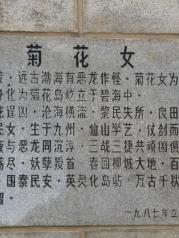 菊花女
远古渤海有恶龙作怪·菊花女为
身化为菊花岛屹立于碧海中
逞凶·沧海横流·黎民失所·良田
民女·生于九州·仙山学艺·仗剑而
女与恶龙同沉浮·三战三捷顽凶俱
尽·妖孽授首·春回柳城大地·百
国泰民安·英灵化岛屿·万古千秋
一九八七年立